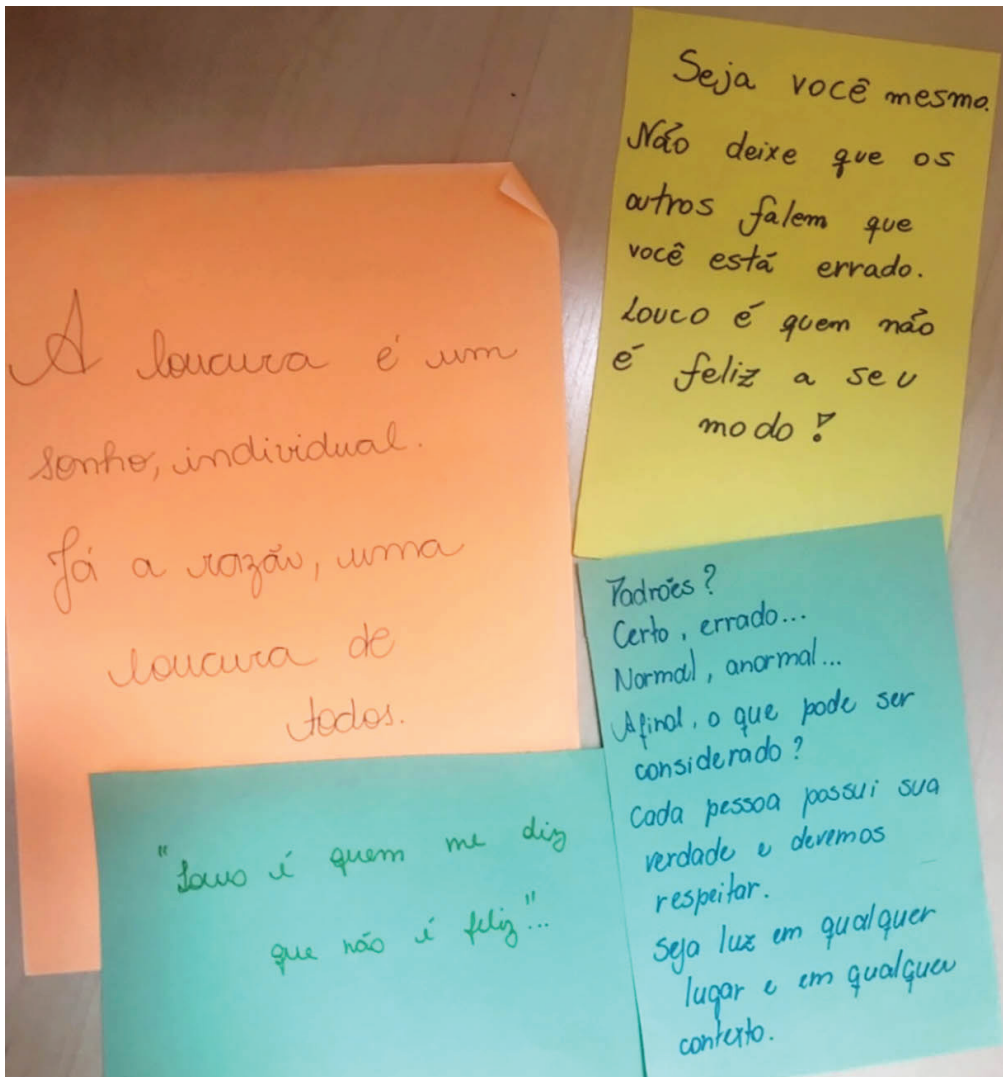 A loucura é um
sonho, individual.
Já a razão, uma
loucura de
todos.
Seja você mesmo.
Não deixe que os
outros falem que
você está errado.
Louco é quem não
é feliz a seu
modo!
"Louco é quem me diz
que não é feliz"...
Padrões?
Certo, errado...
Normal, anormal...
Afinal, o que pode ser
considerado?
Cada pessoa possui sua
verdade e devemos
respeitar.
Seja luz em qualquer
lugar e em qualquer
contexto.